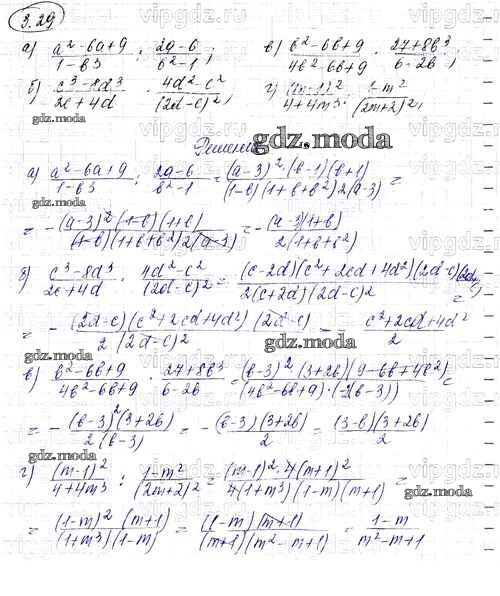 3.29
а) (a²-6a+9)/(1-b³) : (2a-6)/(b²-1); в) (b²-6b+9)/(4b²-6b+9) · (27+8b³)/(6-2b);
б) (c³-8d³)/(2c+4d) · (4d²-c²)/(2d-c)²; г) (m-1)²/(4+4m³) : (1-m²)/(2m+2)²;
gdz.moda
Решение
gdz.moda
а) (a²-6a+9)/(1-b³) : (2a-6)/(b²-1) = ((a-3)²·(b-1)(b+1))/((1-b)(1+b+b²)2(a-3)) =
= -((a-3)²(1-b)(1+b))/((1-b)(1+b+b²)2(a-3)) = -((a-3)(1+b))/(2(1+b+b²))
б) (c³-8d³)/(2c+4d) · (4d²-c²)/(2d-c)² = ((c-2d)(c²+2cd+4d²)(2d-c)(2d+c))/(2(c+2d)(2d-c)²) =
= -((2d-c)(c²+2cd+4d²)(2d-c))/(2(2d-c)²) = -(c²+2cd+4d²)/2
gdz.moda
в) (b²-6b+9)/(4b²-6b+9) · (27+8b³)/(6-2b) = ((b-3)²(3+2b)(9-6b+4b²))/((4b²-6b+9)·(-2(b-3))) =
gdz.moda
= -((b-3)²(3+2b))/(2(b-3)) = -((b-3)(3+2b))/2 = ((3-b)(3+2b))/2
gdz.moda
г) (m-1)²/(4+4m³) : (1-m²)/(2m+2)² = ((m-1)²·4(m+1)²)/(4(1+m³)(1-m)(m+1)) =
gdz.moda
= ((1-m)²(m+1))/((1+m³)(1-m)) = ((1-m)(m+1))/((m+1)(m²-m+1)) = (1-m)/(m²-m+1)
vipgdz.ru